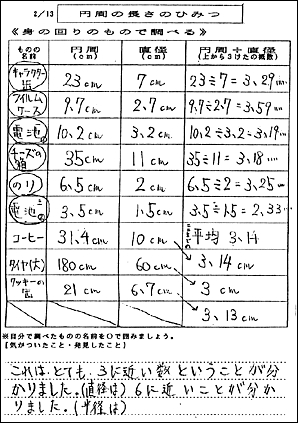 2/13 円周の長さのひみつ
《身の回りのもので調べる》
ものの名前 円周(cm) 直径(cm) 円周÷直径(上から3けたの概数)
キャラクター缶 23cm 7cm 23÷7=3,29…
フイルムケース 9.7cm 2.7cm 9.7÷2.7=3,59…
電池 10,2cm 3,2cm 10,2÷3,2=3,19…
チーズの箱 35cm 11cm 35÷11=3,18…
のり 6,5cm 2cm 6,5÷2=3,25…
電池 3,5cm 1,5cm 3.5÷1.5=2,33…
コーヒー 31,4cm 10cm 平均 3,11
タイヤ(大) 180cm 60cm 3,14cm
クッキーの缶 21cm 6,7cm 3cm
3,13cm
※自分で調べたものの名前を○で囲みましょう。
【気がついたこと・発見したこと】
これは、とても 3に近い数 ということが分
かりました。(直径は) 6に近いことが分か
りました。(半径は)